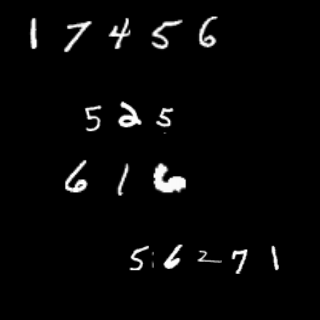 1 7 4 5 6
5 2 5
6 1 6
5 6 2 7 1